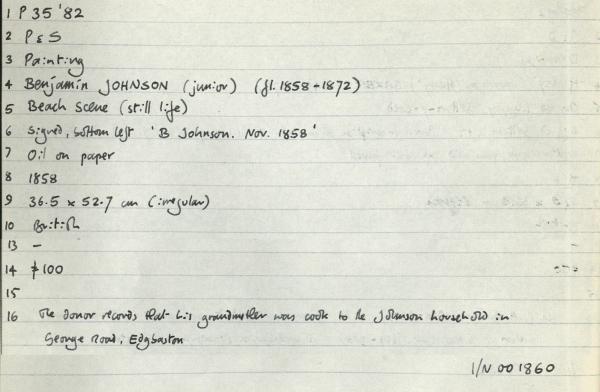 1 P 35 '82
2 P & S
3 Painting
4 Benjamin JOHNSON (junior) (fl. 1858-1872)
5 Beach Scene (still life)
6 Signed, bottom left 'B Johnson. Nov. 1858'
7 Oil on paper
8 1858
9 36.5 x 52.7 cm (irregular)
10 British
13 -
14 100
15
16 The donor records that his grandmother was cook to the Johnson household in
George Road, Edgbaston
I/N 001860